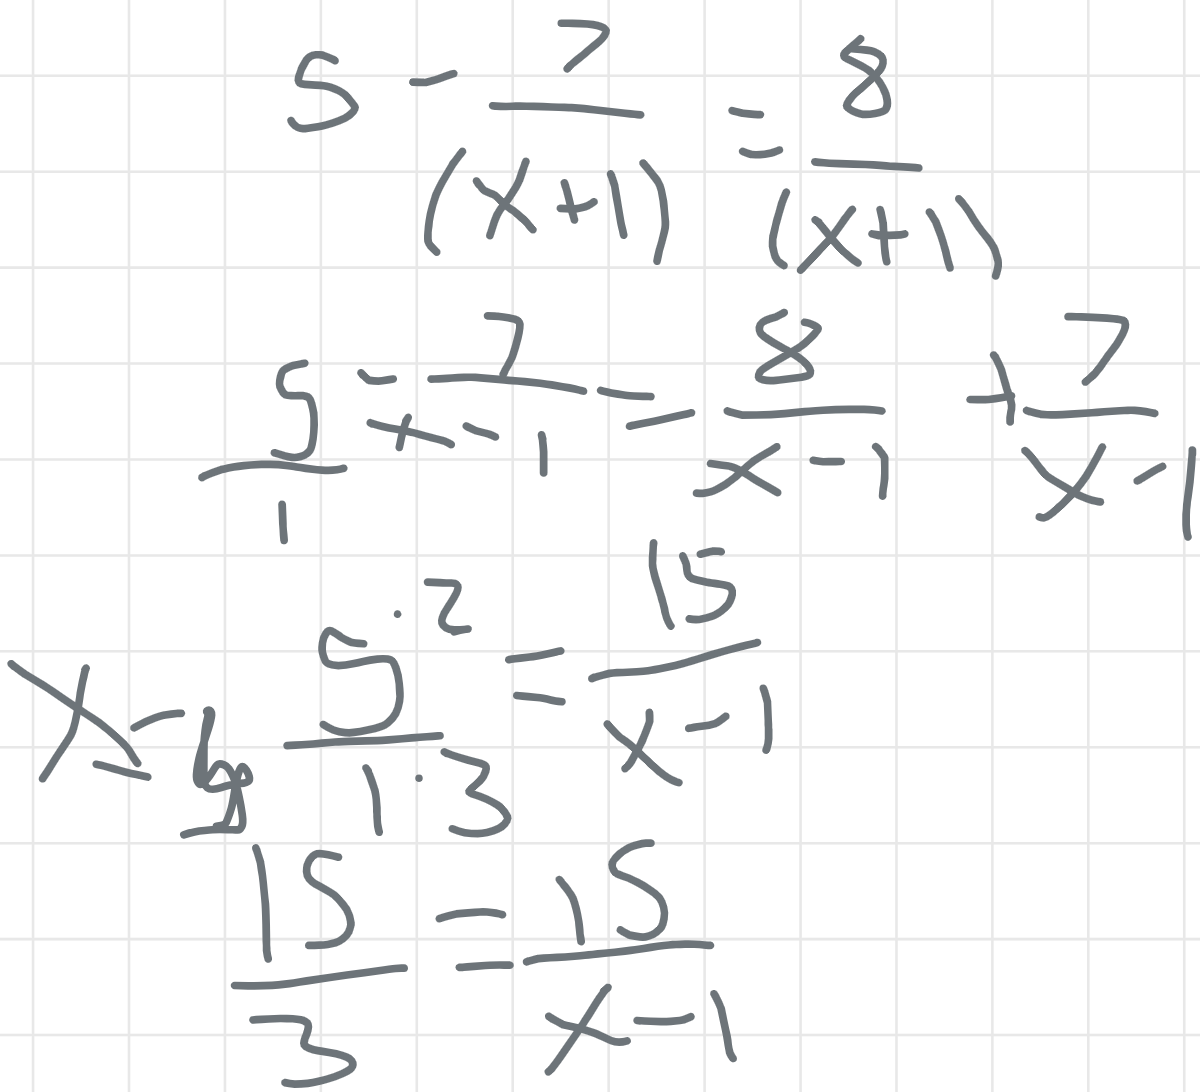 5 - 7/(x+1) = 8/(x+1)
5/1 - 7/x-1 = 8/x-1 + 7/x-1
5·2/1·3 = 15/x-1
x =
15/3 = 15/x-1